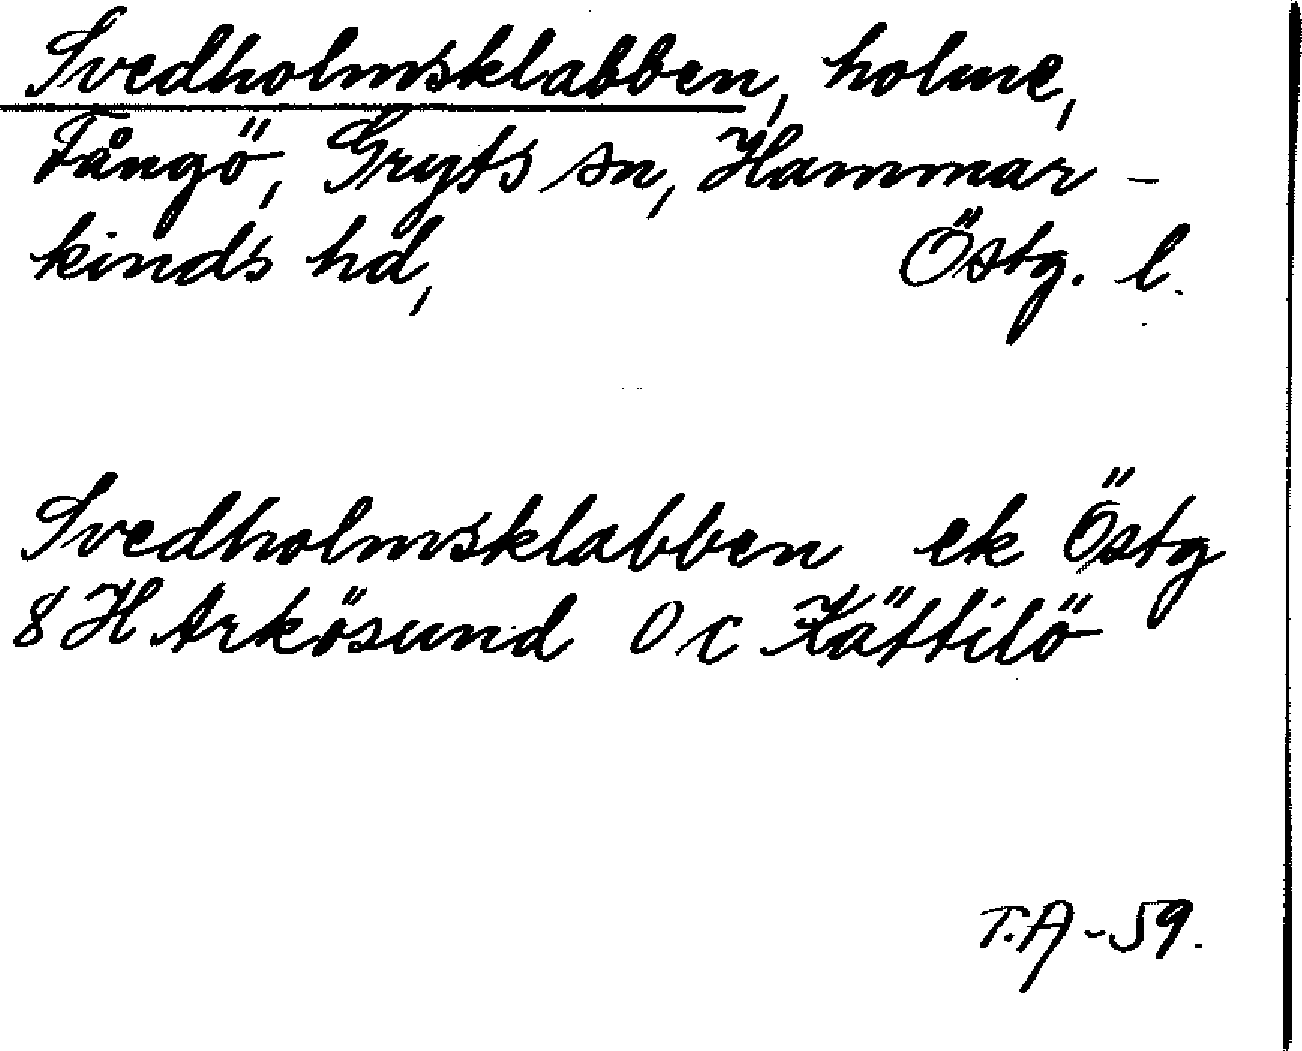 Svedholmsklabben, holme,
Fångö, Gryts sn, Hammar-
kinds hd, Östg. l.
Svedholmsklabben ek Östg
8 H Arkösund 0 c Kättilö
T.A-59.